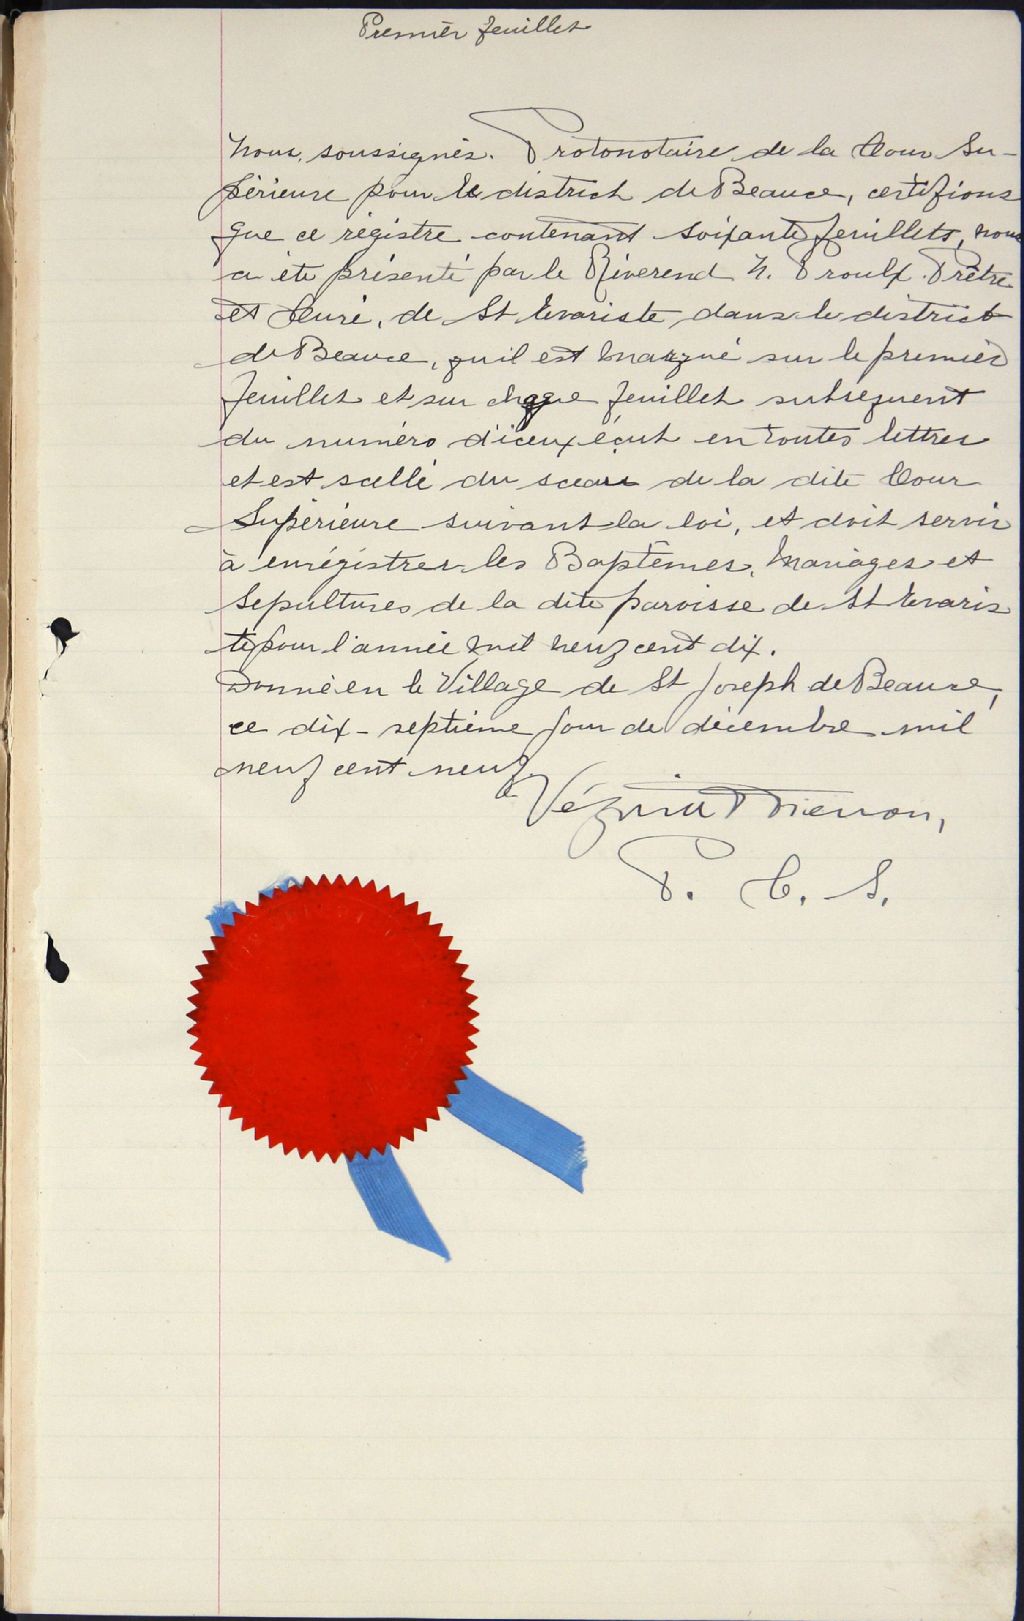 Premier feuillet
Nous, soussignés. Protonotaire de la Cour Su-
périeure pour le district de Beauce, certifions
que ce régistre contenant soixante feuillets, nous
a été présenté par le Réverend N. Proulx. Prêtre
et Curé, de St Evariste dans le district
de Beauce, qu'il est marqué sur le premier
feuillet et sur chaque feuillet subséquent
du numéro d'iceux écrit en toutes lettres
et est scellé du sceau de la dite Cour
Supérieure suivant la loi, et doit servir
à enrégistrer les Baptêmes, Mariages et
Sepultures de la dite paroisse de St Evaris
te pour l'année mil neuf cent dix.
Donné en le Village de St Joseph de Beauce,
ce dix-septième jour de décembre mil
neuf cent neuf.
Vézina
P. C. S.